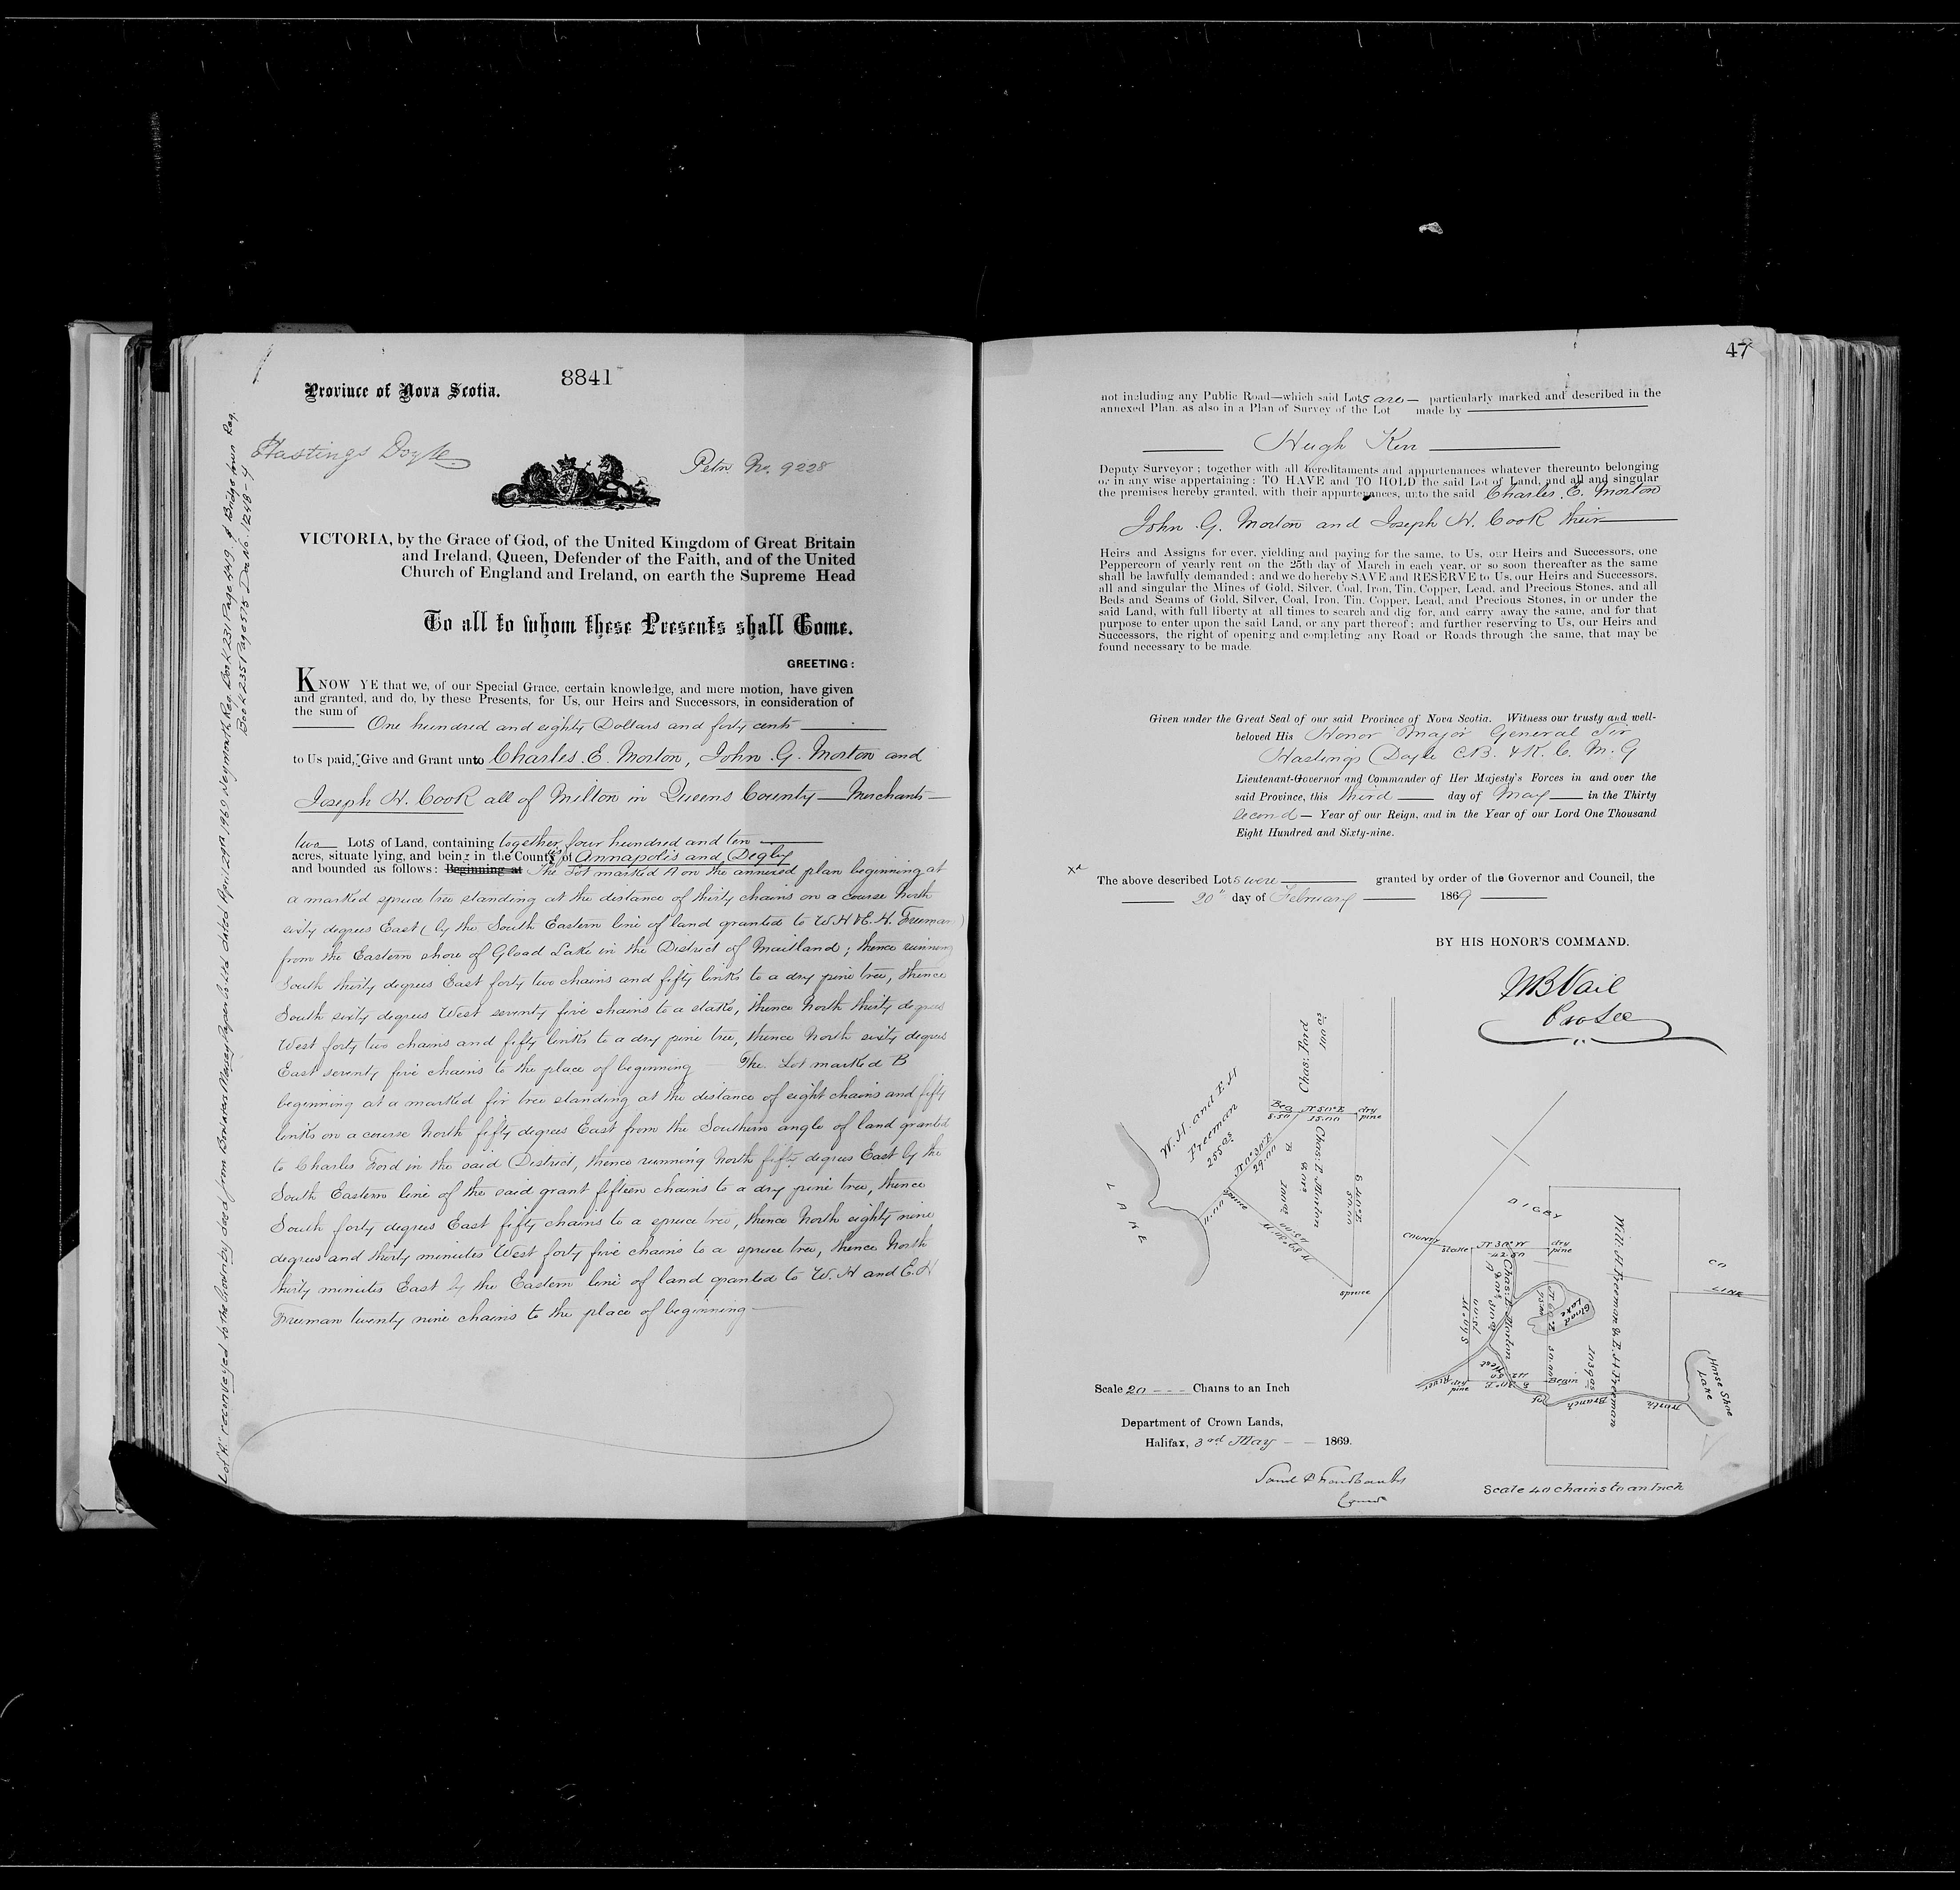 8841
Province of Nova Scotia.
Hastings Doyle
Petn No. 9228
VICTORIA, by the Grace of God, of the United Kingdom of Great Britain
and Ireland, Queen, Defender of the Faith, and of the United
Church of England and Ireland, on earth the Supreme Head
To all to whom these Presents shall Come.
GREETING:
KNOW YE that we, of our Special Grace, certain knowledge, and mere motion, have given
and granted, and do, by these Presents, for Us, our Heirs and Successors, in consideration of
the sum of
One hundred and eighty Dollars and forty cents
to Us paid, Give and Grant unto Charles. E. Morton, John. G. Morton and
Joseph H. Cook all of Milton in Queens County — Merchants —
two Lots of Land, containing together four hundred and ten
acres, situate lying, and being in the Counties of Annapolis and Digby
and bounded as follows: Beginning at The Lot marked A on the annexed plan beginning at
a marked spruce tree standing at the distance of thirty chains on a course North
sixty degrees East (by the South Eastern line of land granted to W. H & E. H. Freeman)
from the Eastern shore of Gload Lake in the District of Maitland; thence running
South thirty degrees East forty two chains and fifty links to a dry pine tree, thence
South sixty degrees West seventy five chains to a stake, thence North thirty degrees
West forty two chains and fifty links to a dry pine tree, thence North sixty degrees
East seventy five chains to the place of beginning — The Lot marked B
beginning at a marked fir tree standing at the distance of eight chains and fifty
links on a course North fifty degrees East from the Southern angle of land granted
to Charles Ford in the said District, thence running North fifty degrees East by the
South Eastern line of the said grant fifteen chains to a dry pine tree, thence
South forty degrees East fifty chains to a spruce tree, thence North eighty nine
degrees and thirty minutes West forty five chains to a spruce tree, thence North
thirty minutes East by the Eastern line of land granted to W. H and E. H
Freeman twenty nine chains to the place of beginning —
Lot "A" reconveyed to the Crown by deed from Bowater Mersey Paper Co Ltd dated April 29th 1969 Weymouth Reg. Book 231 Page 449. & Bridgetown Reg.
Book 235 Page 575 Doc No. 1248-4
47
not including any Public Road—which said Lots are — particularly marked and described in the
annexed Plan, as also in a Plan of Survey of the Lot made by
Hugh Kerr
Deputy Surveyor; together with all hereditaments and appurtenances whatever thereunto belonging
or in any wise appertaining: TO HAVE and TO HOLD the said Lot of Land, and all and singular
the premises hereby granted, with their appurtenances, unto the said Charles. E. Morton
John G. Morton and Joseph H. Cook their
Heirs and Assigns for ever, yielding and paying for the same, to Us, our Heirs and Successors, one
Peppercorn of yearly rent on the 25th day of March in each year, or so soon thereafter as the same
shall be lawfully demanded; and we do hereby SAVE and RESERVE to Us, our Heirs and Successors,
all and singular the Mines of Gold, Silver, Coal, Iron, Tin, Copper, Lead, and Precious Stones, and all
Beds and Seams of Gold, Silver, Coal, Iron, Tin, Copper, Lead, and Precious Stones, in or under the
said Land, with full liberty at all times to search and dig for, and carry away the same, and for that
purpose to enter upon the said Land, or any part thereof; and further reserving to Us, our Heirs and
Successors, the right of opening and completing any Road or Roads through the same, that may be
found necessary to be made.
Given under the Great Seal of our said Province of Nova Scotia. Witness our trusty and well-
beloved His Honor Major General Sir
Hastings Doyle C.B. & K. C. M. G
Lieutenant-Governor and Commander of Her Majesty's Forces in and over the
said Province, this third day of May in the Thirty
second — Year of our Reign, and in the Year of our Lord One Thousand
Eight Hundred and Sixty-nine.
The above described Lots were granted by order of the Governor and Council, the
20" day of February 1869
BY HIS HONOR'S COMMAND.
W B Vail
Pro Sec
Chas: Ford
W. H. and E. H
Freeman
255 as
Beg
8.50
N 50° E
15.00
dry
pine
N 0° 30' E
29.00
B
Chas: E. Morton
& ors
S 40° E
50.00
Spruce
11.00
45.00
Spruce
LAKE
DIGBY
COUNTY
Stake
N 30° W
42.50
dry
pine
CO
LINE
Will. H. Freeman & E. H Freeman
Chas: E. Morton
& ors
A
75.00
Gload
Lake
30.00
Begin
dry
pine
West
River
North
Branch
of
Horse Shoe
Lake
Scale 20 --- Chains to an Inch
Department of Crown Lands,
Halifax, 3rd May — 1869.
Saml P Fairbanks
Scale 40 chains to an Inch